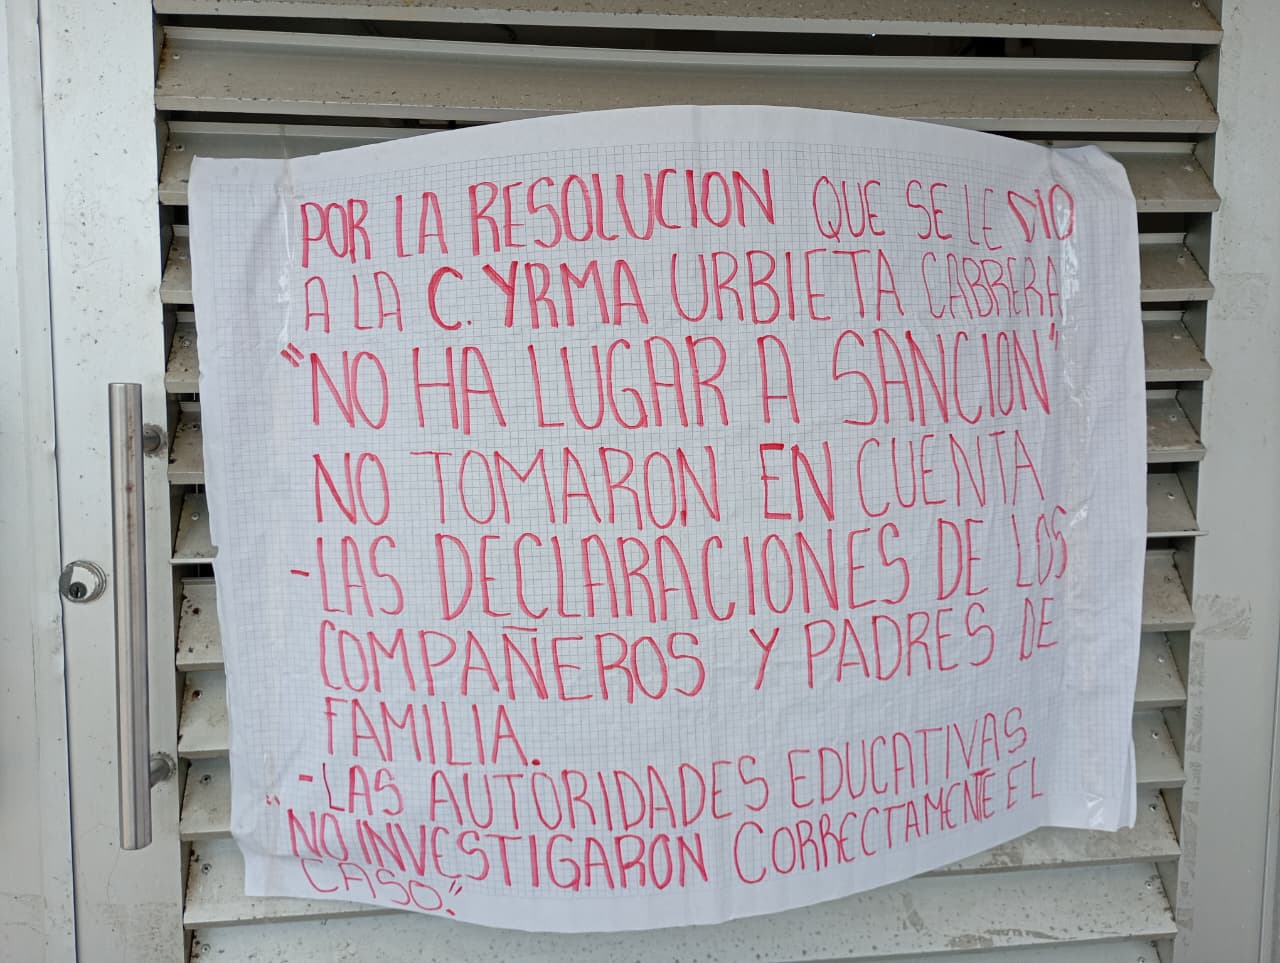 POR LA RESOLUCION QUE SE LE DIO
A LA C. YRMA URBIETA CABRERA
"NO HA LUGAR A SANCION"
NO TOMARON EN CUENTA
-LAS DECLARACIONES DE LOS
COMPAÑEROS Y PADRES DE
FAMILIA.
-LAS AUTORIDADES EDUCATIVAS
"NO INVESTIGARON CORRECTAMENTE EL
CASO."